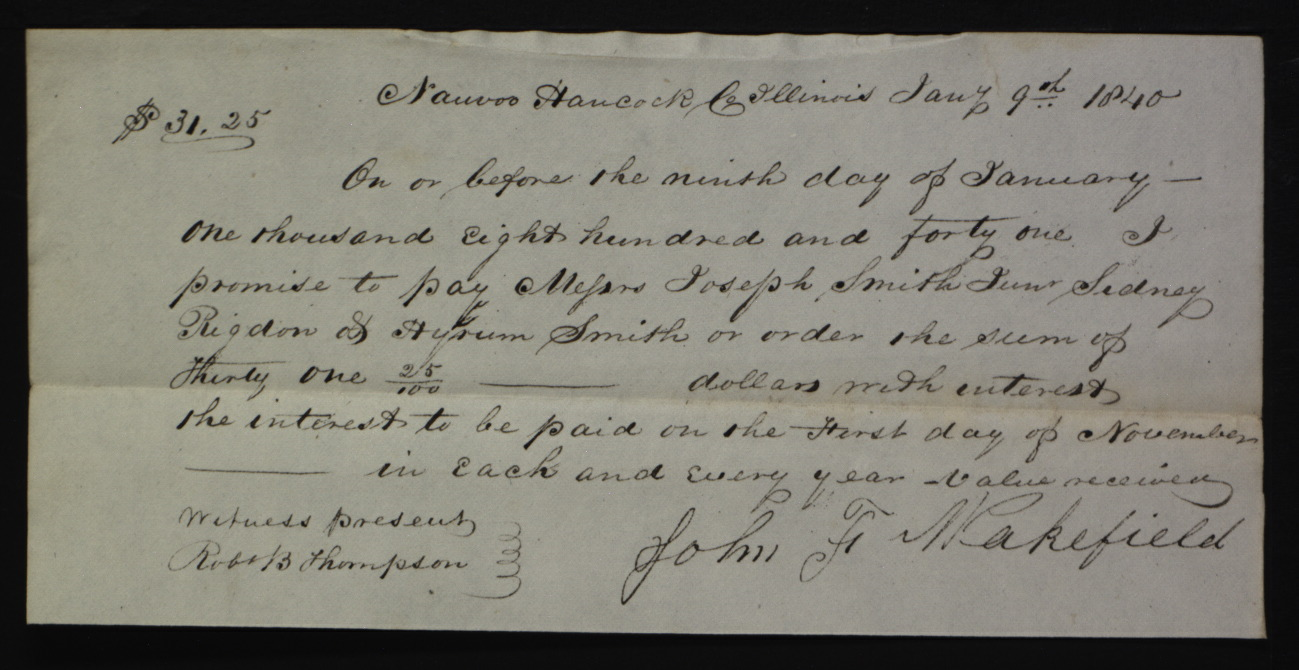 Nauvoo Hancock Co Illinois Jany 9th 1840
$ 31.25
On or before the ninth day of January —
One thousand Eight hundred and forty one I
promise to pay Messrs Joseph Smith Junr Sidney
Rigdon & Hyrum Smith or order the sum of
Thirty One 25/100 ——— dollars with interest
the interest to be paid on the First day of November
——— in Each and Every year Value received
Witness present
Robt B Thompson
John F Wakefield